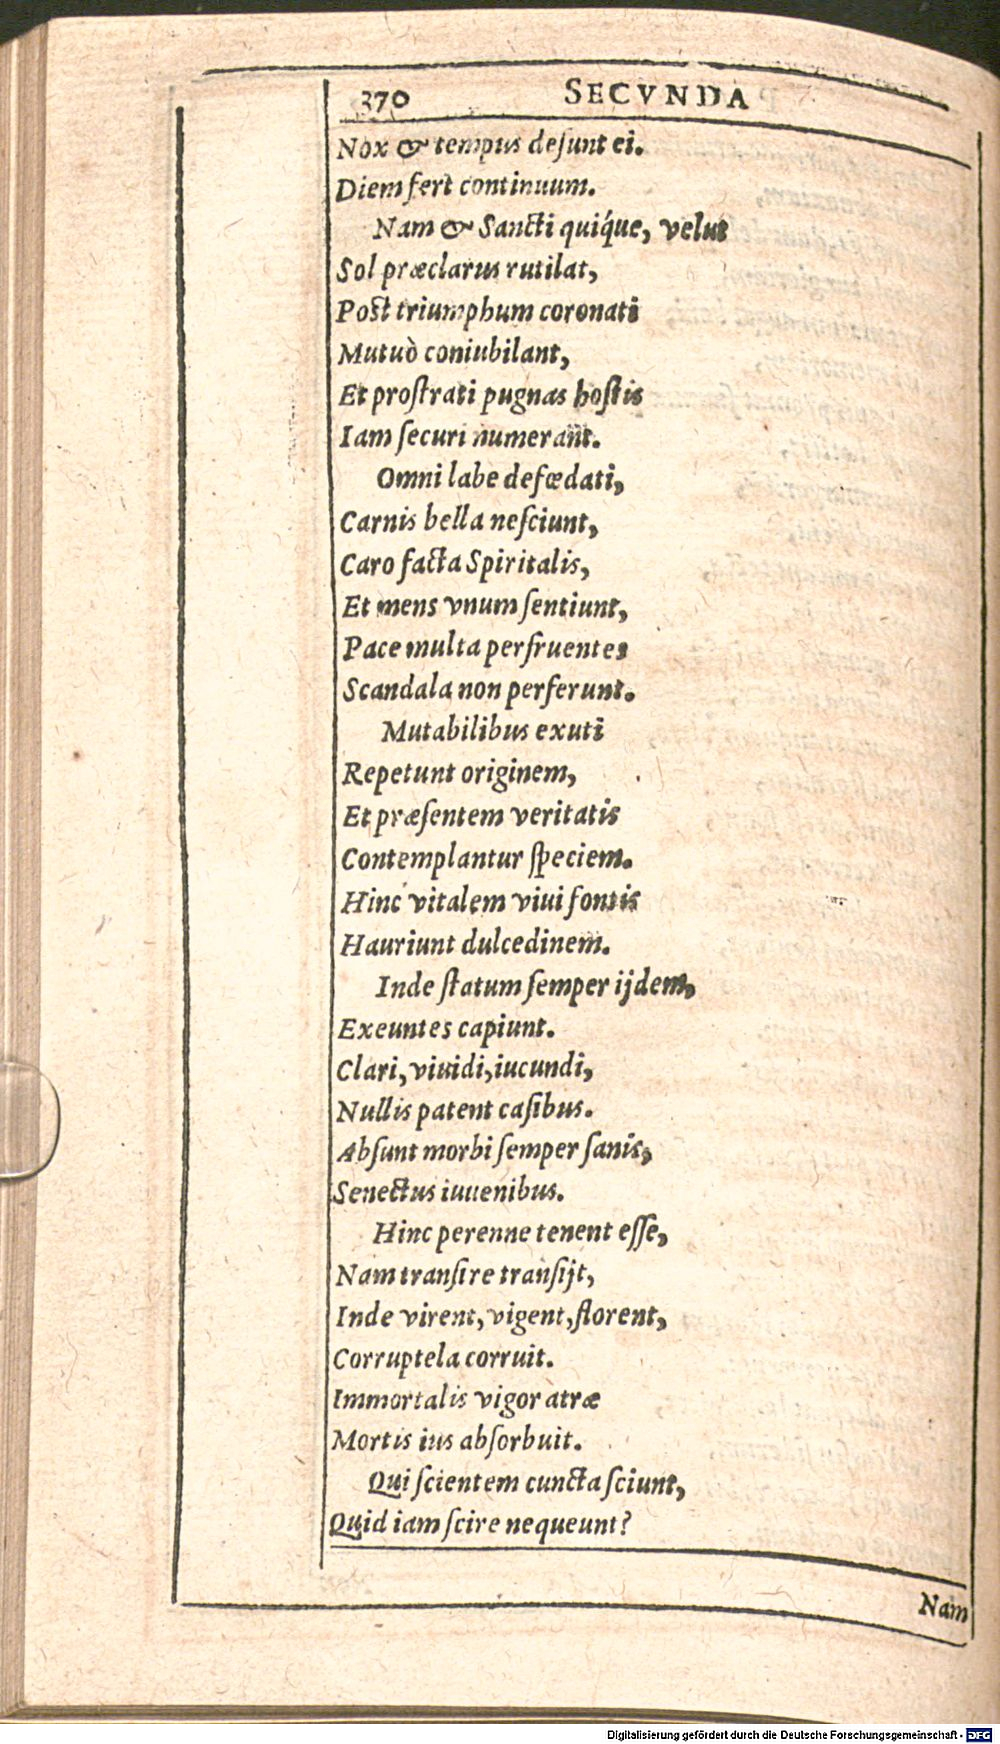 370 SECVNDA
Nox & tempus desunt ei.
Diem fert continuum.
Nam & Sancti quiq́ue, velut
Sol præclarus rutilat,
Post triumphum coronati
Mutuò coniubilant,
Et prostrati pugnas hostis
Iam securi numerant.
Omni labe defœdati,
Carnis bella nesciunt,
Caro facta Spiritalis,
Et mens vnum sentiunt,
Pace multa perfruentes
Scandala non perferunt.
Mutabilibus exuti
Repetunt originem,
Et præsentem veritatis
Contemplantur speciem.
Hinc vitalem viui fontis
Hauriunt dulcedinem.
Inde statum semper ijdem,
Exeuntes capiunt.
Clari, viuidi, iucundi,
Nullis patent casibus.
Absunt morbi semper sanis,
Senectus iuuenibus.
Hinc perenne tenent esse,
Nam transire transijt,
Inde virent, vigent, florent,
Corruptela corruit.
Immortalis vigor atræ
Mortis ius absorbuit.
Qui scientem cuncta sciunt,
Quid iam scire nequeunt?
Nam
Digitalisierung gefördert durch die Deutsche Forschungsgemeinschaft - DFG